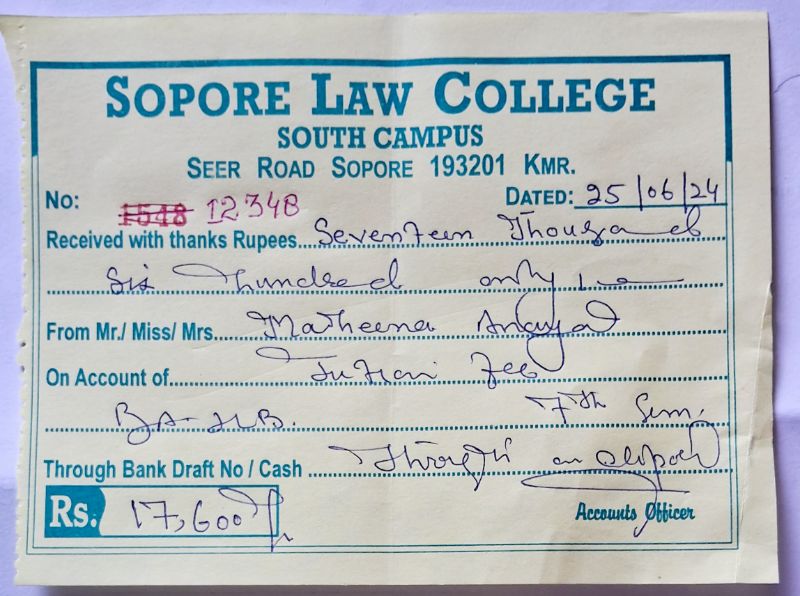 SOPORE LAW COLLEGE
SOUTH CAMPUS
SEER ROAD SOPORE 193201 KMR.
No: 1548 12348 DATED: 25/06/24
Received with thanks Rupees Seventeen Thousand
Six Hundred only
From Mr./ Miss/ Mrs. Matheena
On Account of Tution Fee
BA-LLB. 7th Sem.
Through Bank Draft No / Cash Through
Rs. 17,600/-
Accounts Officer